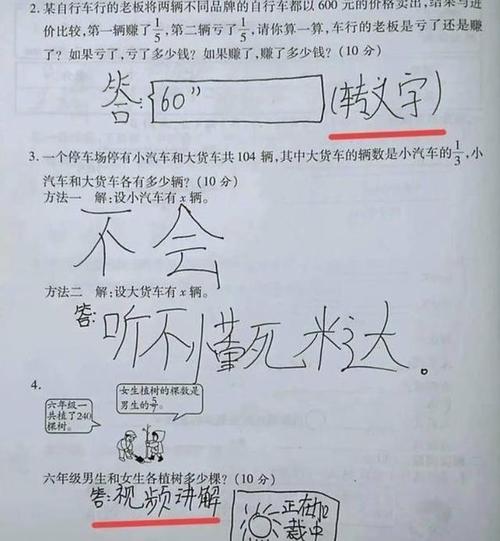 2. 某自行车行的老板将两辆不同品牌的自行车都以 600 元的价格卖出,结果与进
价比较,第一辆赚了1/5,第二辆亏了1/5,请你算一算,车行的老板是亏了还是赚
了?如果亏了,亏了多少钱?如果赚了,赚了多少钱?(10 分)
答: 60" (转义字)
3. 一个停车场停有小汽车和大货车共 104 辆,其中大货车的辆数是小汽车的1/3,小
汽车和大货车各有多少辆?(10 分)
方法一 解:设小汽车有 x 辆。
不会
方法二 解:设大货车有 x 辆。
答: 听不懂死米达。
4.
女生植树的棵数是
男生的
六年级一
共植了240
棵树。
六年级男生和女生各植树多少棵?(10 分)
答:视频讲解
正在加
载中